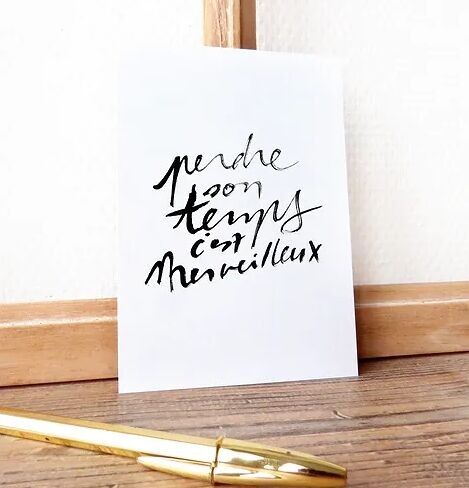 perdre
son
temps
c'est
merveilleux